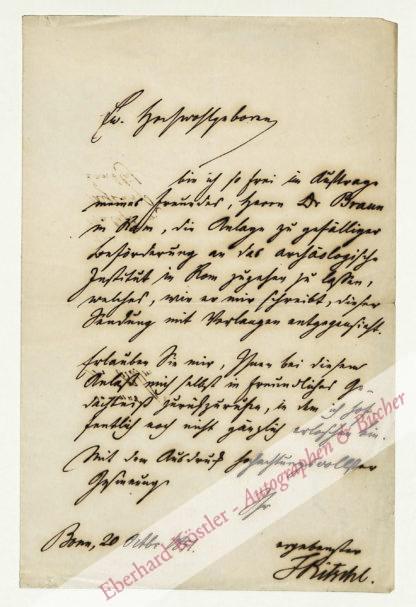 Ew. Hochwohlgeboren
bin ich so frei im Auftrage
meines Freundes, Herrn Dr Braun
in Rom, die Anlage zu gefälliger
Beförderung an das archäologische
Institut in Rom zugehen zu lassen,
welches, wie er mir schreibt, dieser
Sendung mit Verlangen entgegensieht.
Erlauben Sie mir, Ihnen bei diesem
Anlaß mich selbst in freundliches Ge-
dächtniß zurückzurufen, in dem ich hof-
fentlich noch nicht gänzlich erloschen bin.
Mit dem Ausdruck hochachtungsvollster
Gesinnung
Ihr
Bonn, 20 Octbr
ergebenster
FRitschl.
Eberhard Köstler - Autographen & Bücher